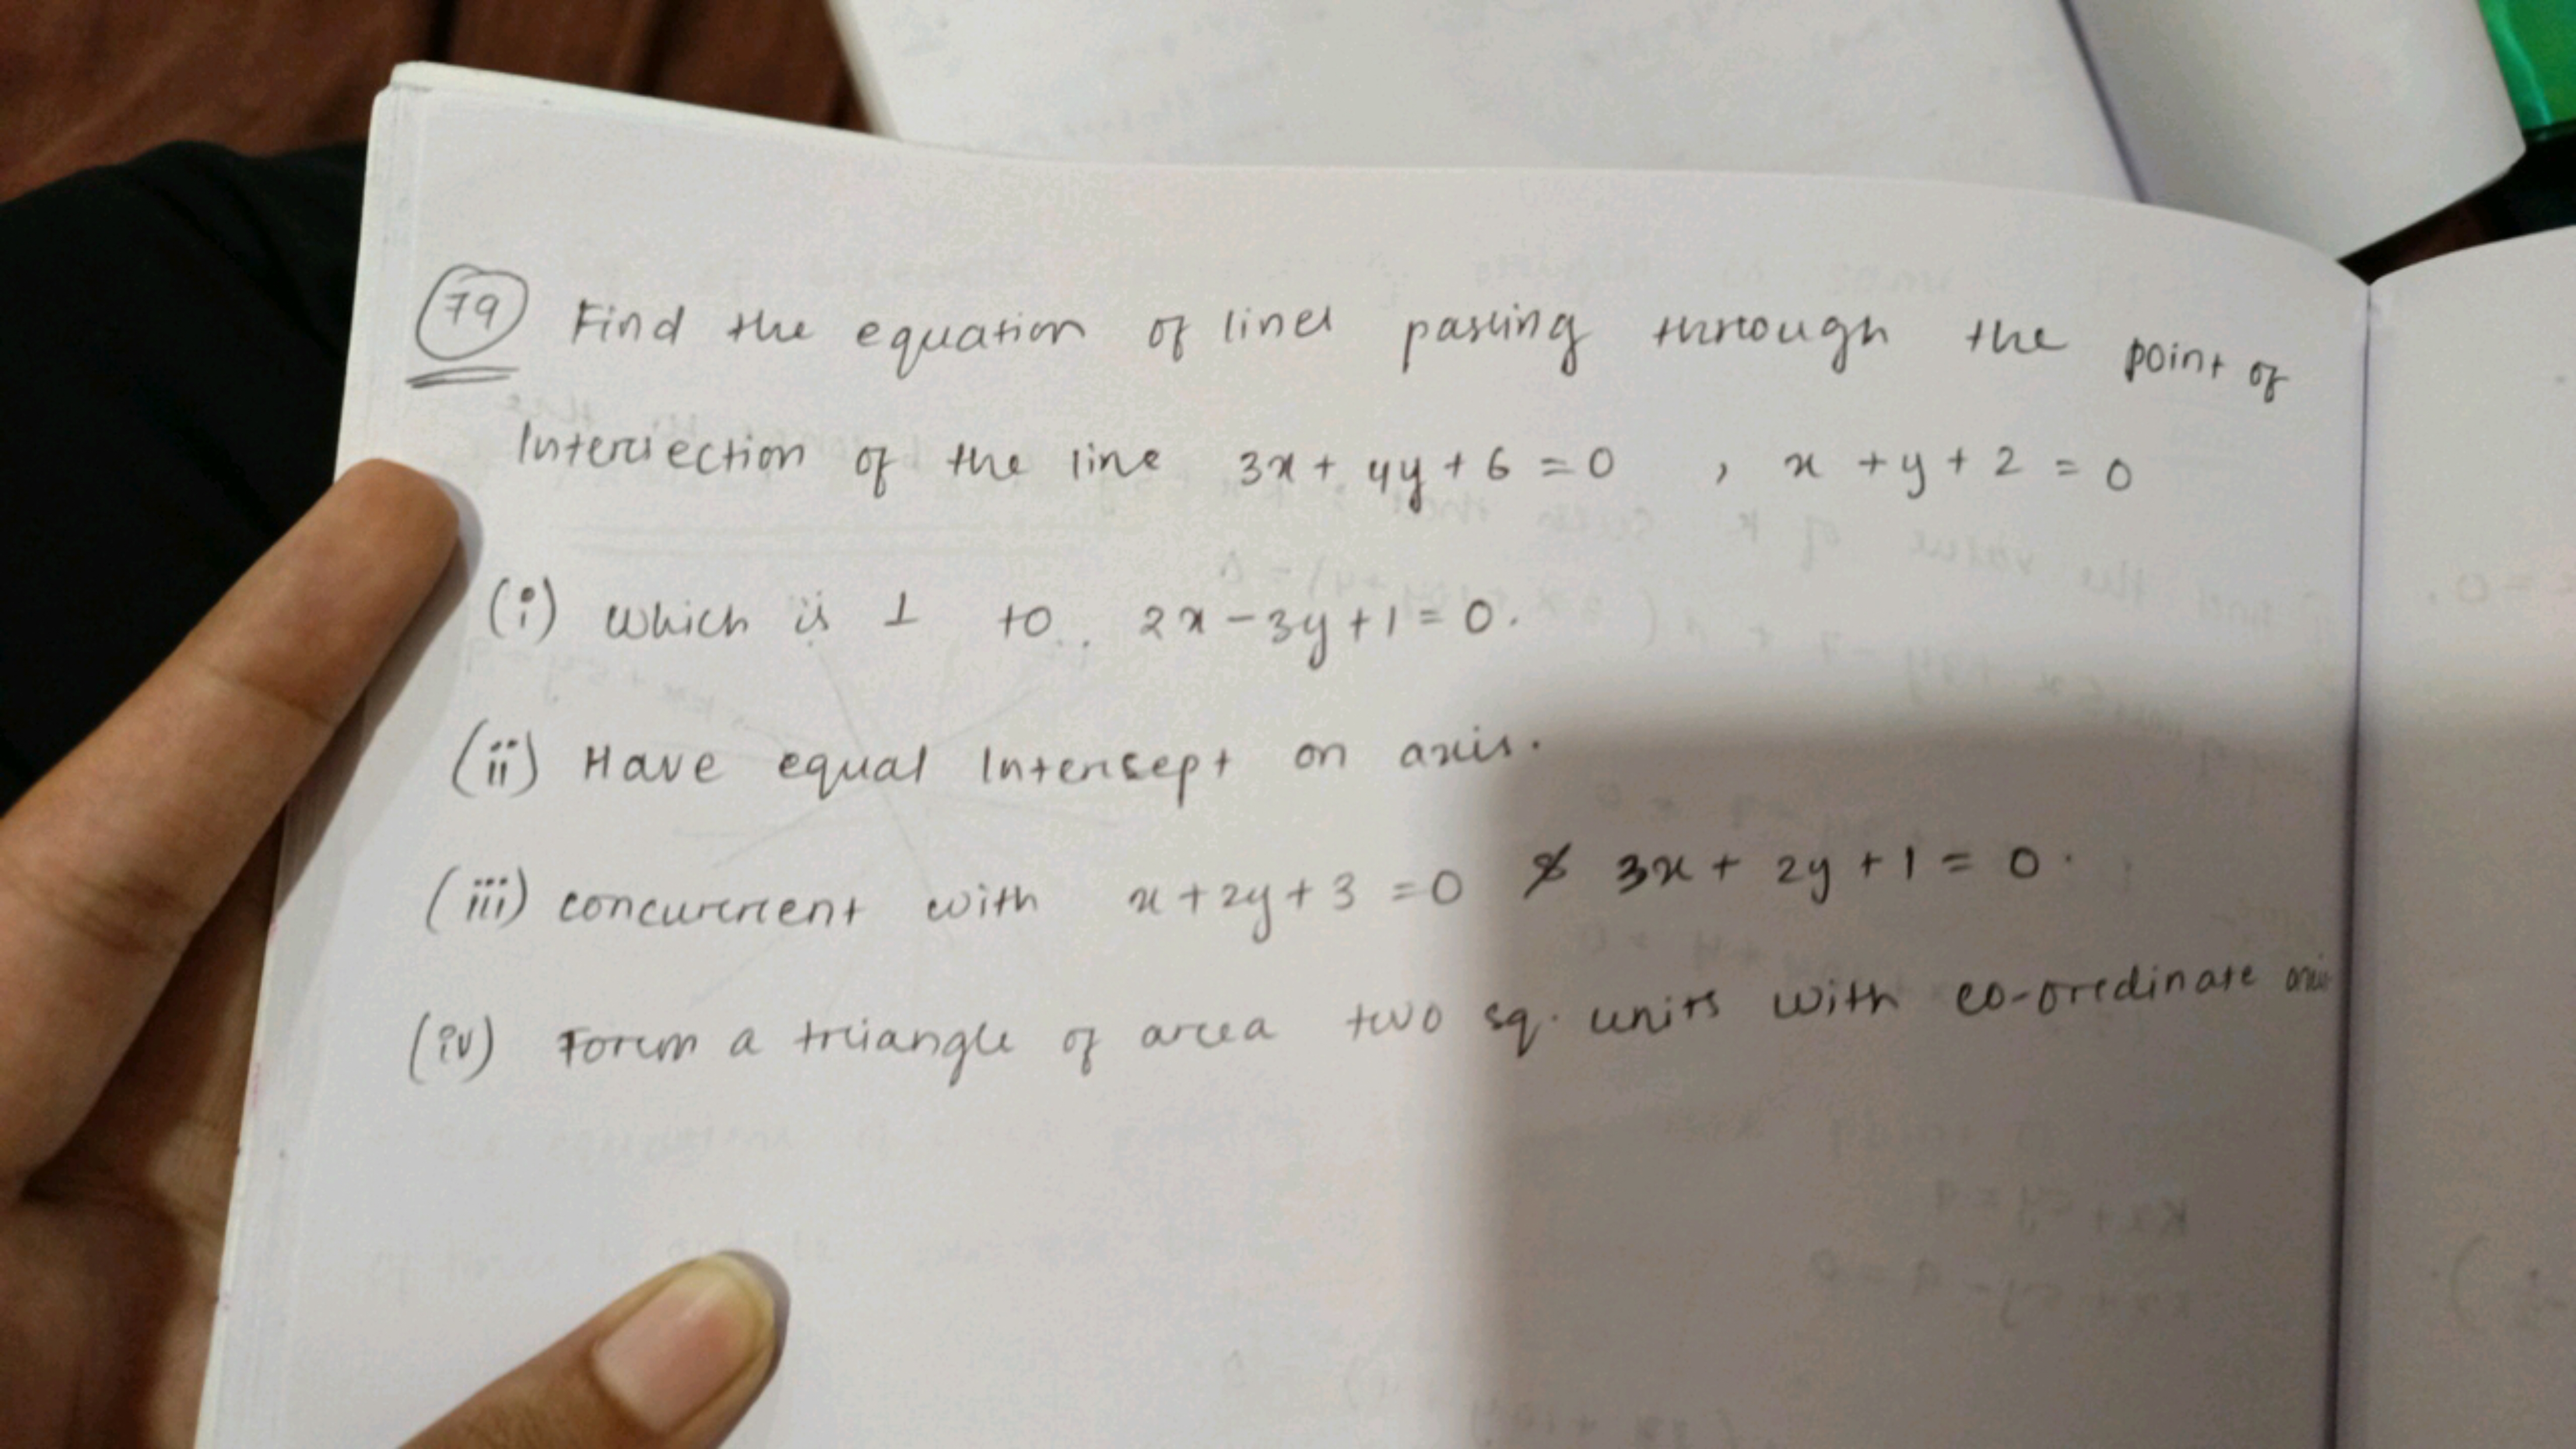 79 Find the equation of lines passing through the point of
Intersection of the line 3x + 4y + 6 = 0 , x + y + 2 = 0
(i) which is ⊥ to. 2x - 3y + 1 = 0.
(ii) Have equal Intersept on axis.
(iii) concurrent with x + 2y + 3 = 0 & 3x + 2y + 1 = 0.
(iv) Form a triangle of area two sq. units with co-ordinate axis